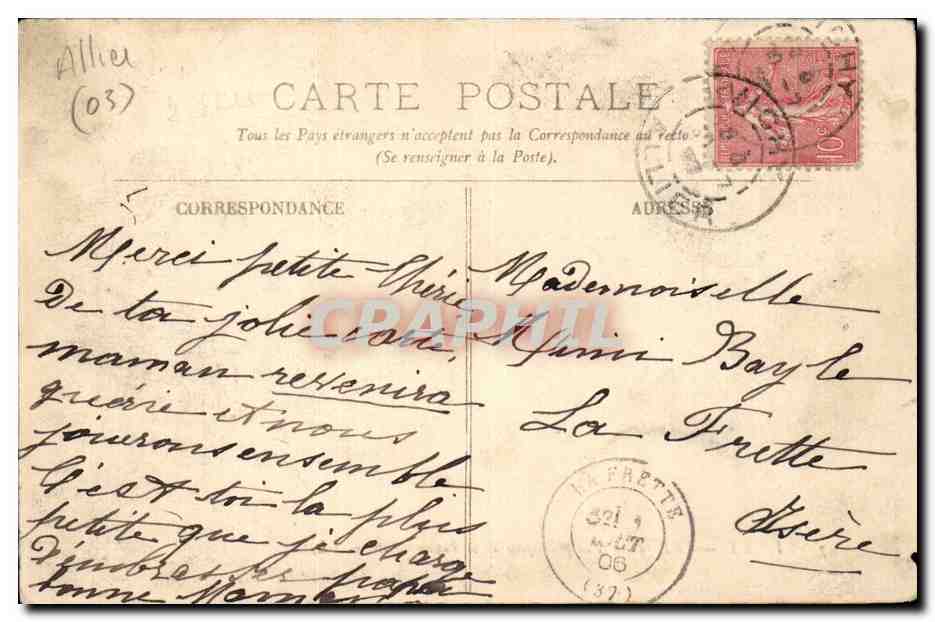 Allier
(03)
CARTE POSTALE
Tous les Pays étrangers n'acceptent pas la Correspondance au recto
(Se renseigner à la Poste).
CORRESPONDANCE
Merci petite chérie
De ta jolie
maman revenira
guérie et nous
jouerons ensemble
C'est toi la plus
petite que je charge
D'embrasser papa
bonne
ADRESSE
Mademoiselle
Mimi Bayle
La Frette
Isère.
10c
VICHY
LA FRETTE
AOUT
06
CPARHIL